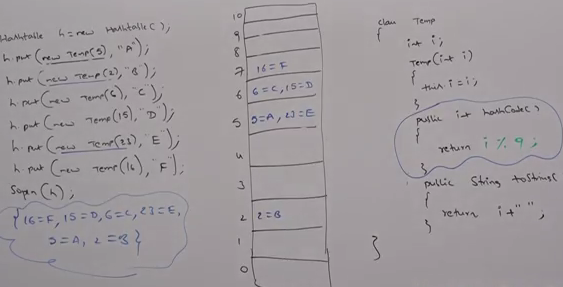 Hashtable h = new Hashtable();
h.put (new Temp(5), "A");
h.put (new Temp(2), "B");
h.put (new Temp(6), "C");
h.put (new Temp(15), "D");
h.put (new Temp(23), "E");
h.put (new Temp(16), "F");
Sopln (h);
{16=F, 15=D, 6=C, 23=E,
5=A, 2=B}
10
9
8
7 16=F
6 6=C, 15=D
5 5=A, 23=E
4
3
2 2=B
1
0
class Temp
{
int i;
Temp(int i)
{
this.i=i;
}
public int hashCode()
{
return i % 9;
}
public String toString(
{
return i+"";
}
}